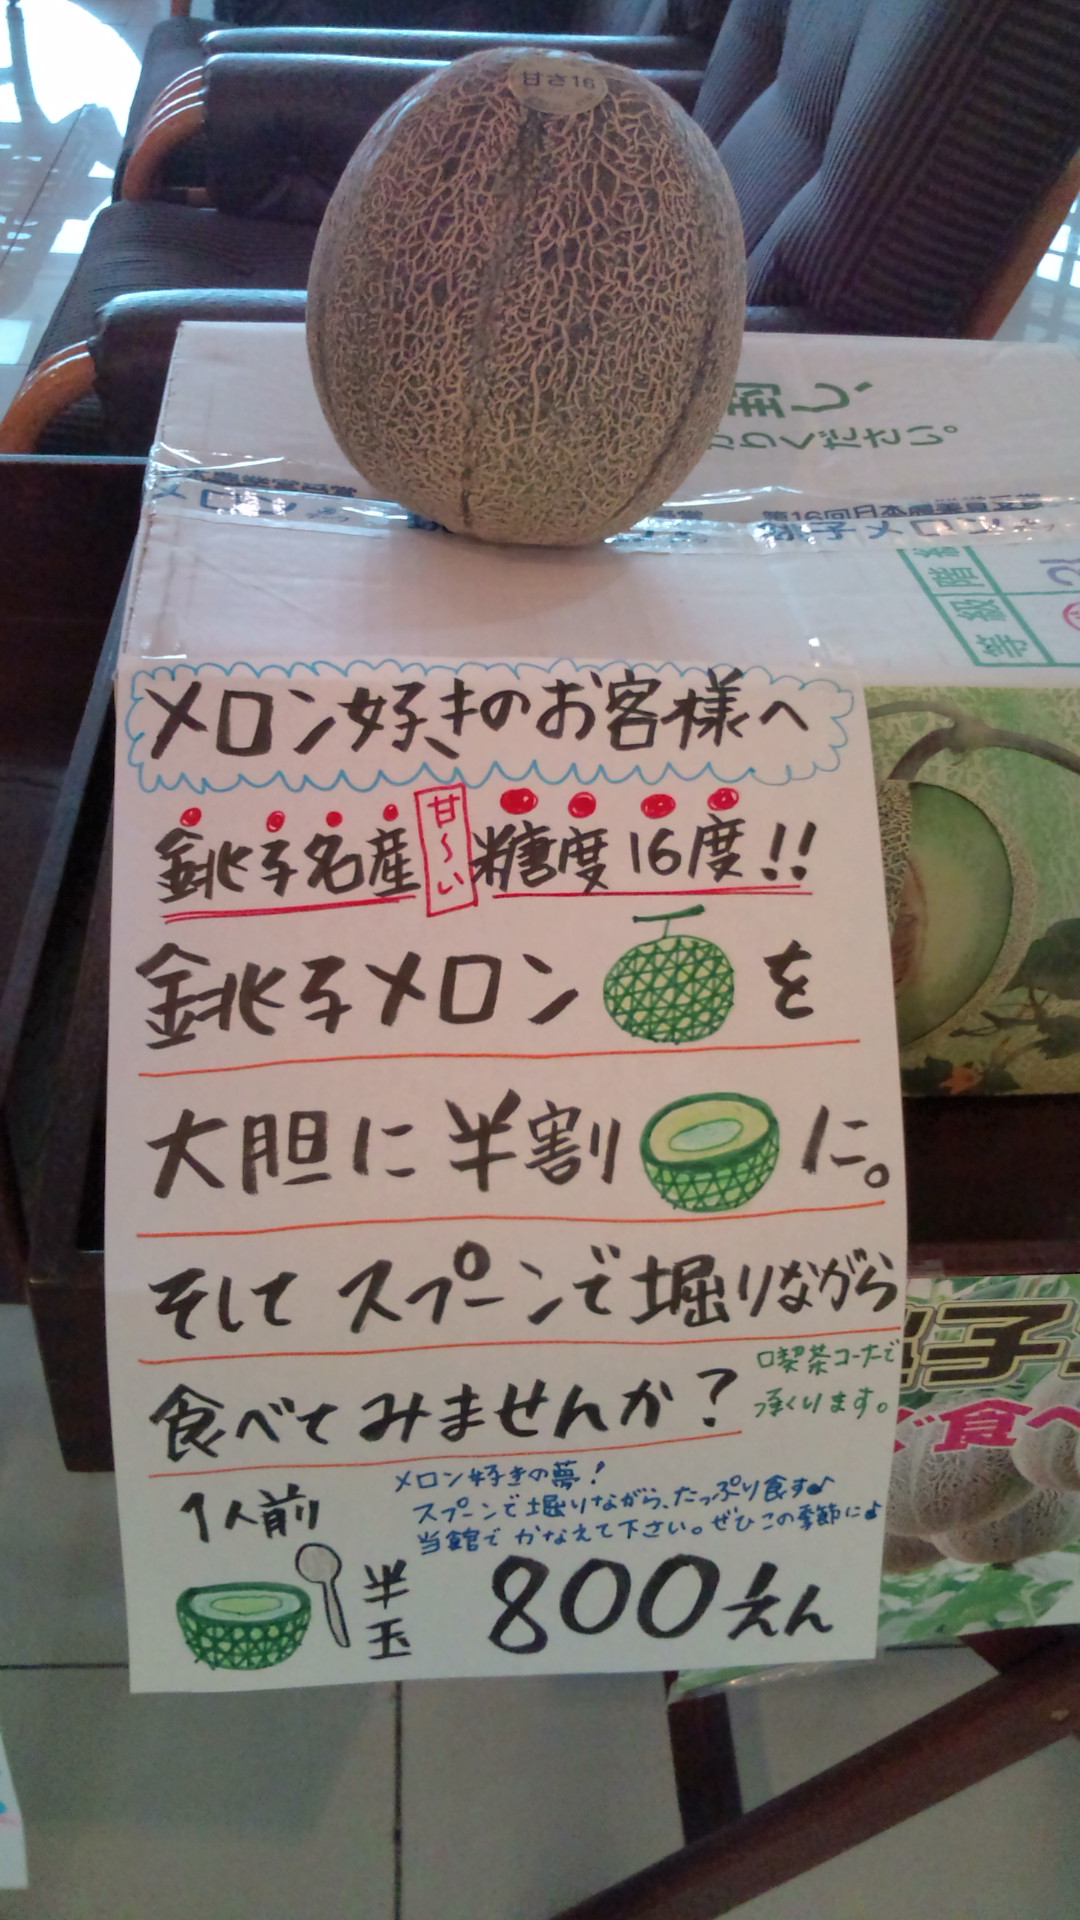 甘さ16
封し、
りください。
第16回日本農業賞
銚子メロン
階
等級
メロン好きのお客様へ
銚子名産 甘〜い 糖度16度!!
銚子メロンを
大胆に半割に。
そしてスプーンで堀りながら
食べてみませんか?
喫茶コーナーで
承くります。
1人前
メロン好きの夢!
スプーンで堀りながら、たっぷり食す♪
当館でかなえて下さい。ぜひこの季節に♪
半玉
800えん
子
食べ